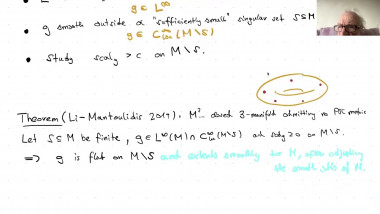 g ∈ L^∞
• g smooth outside a "sufficiently small" singular set S ⊆ M
g ∈ C^∞_loc (M \ S)
• Study scal_g > c on M \ S.
Theorem (Li-Mantoulidis 2019). M³ closed 3-manifold admitting no PSC metric
Let S ⊆ M be finite, g ∈ L^∞(M) ∩ C^∞_loc (M \ S) with scal_g ≥ 0 on M \ S.
⟹ g is flat on M \ S and extends smoothly to M, after adjusting
the smooth str. of M.